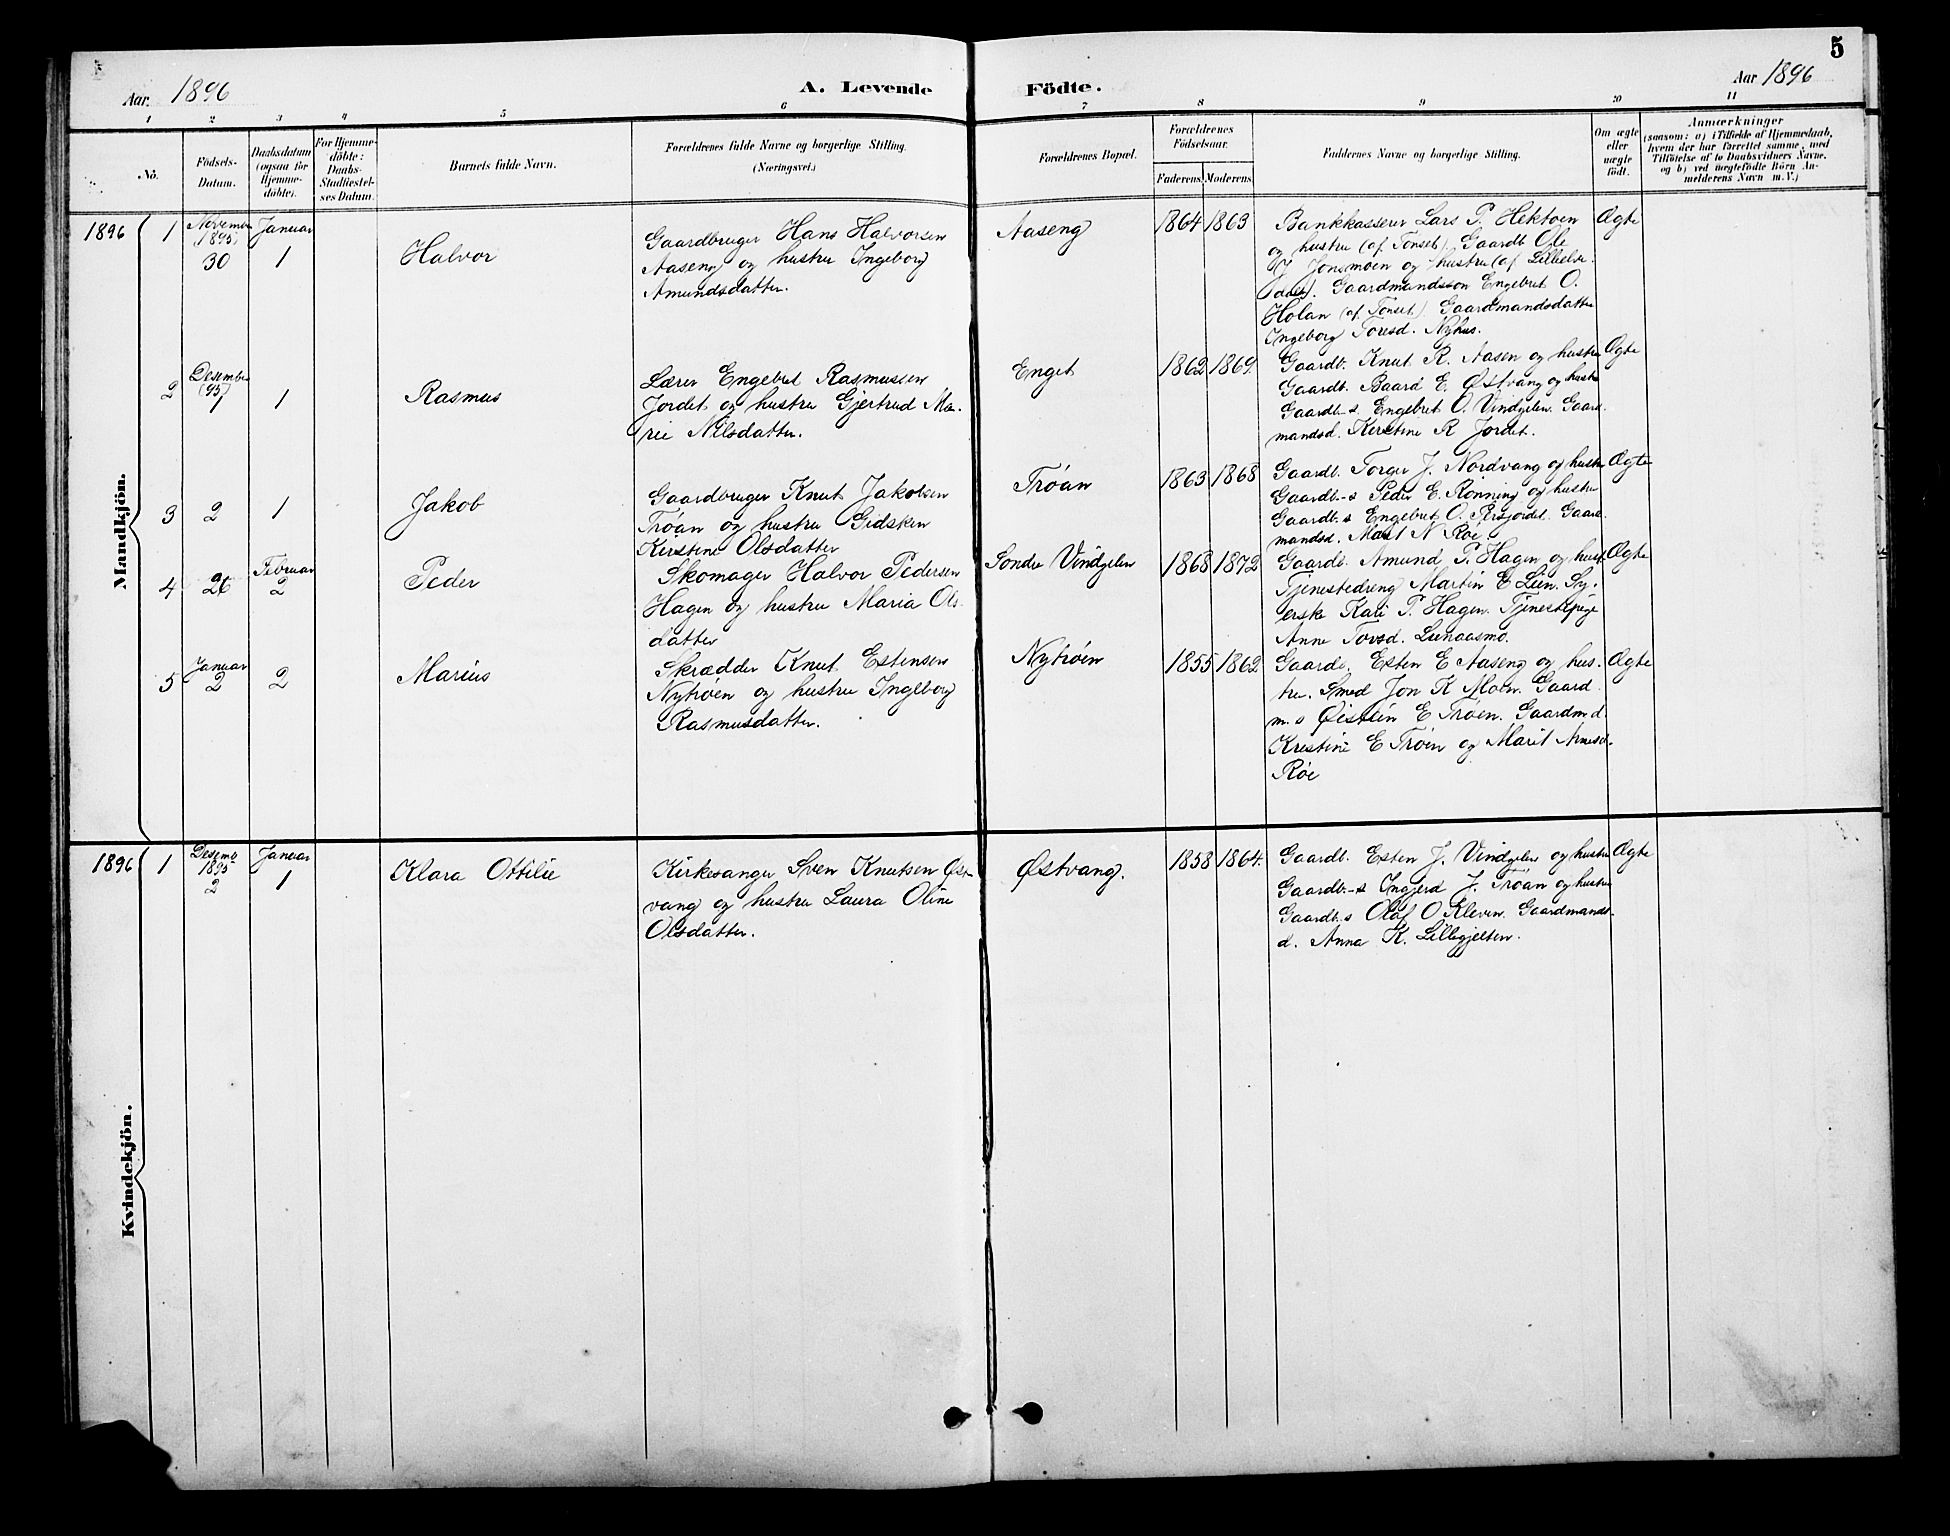 5
Aar. 1896
A. Levende Födte.
Aar 1896
1 2 3 4 5 6 7 8 9 10 11
No.
Födsels-
Datum.
Daabsdatum
(ogsaa for
Hjemme-
döbte).
For Hjemme-
döbte:
Daabs-
Stadfæstel-
ses Datum.
Barnets fulde Navn.
Forældrenes fulde Navne og borgerlige Stilling.
(Næringsvei.)
Forældrenes Bopæl.
Forældrenes
Födselsaar.
Faderens. Moderens.
Faddernes Navne og borgerlige Stilling.
Om ægte
eller
uægte
födt.
Anmærkninger
(saasom: a) i Tilfælde af Hjemmedaab,
hvem der har forrettet samme, med
Tilföielse af to Daabsvidners Navne,
og b) ved uægtefödte Börn An-
melderens Navn m. V.)
Mandkjön.
1896
1
November
1895
30
Januar
1
Halvor
Gaardbruger Hans Halvorsen
Aaseng og hustru Ingeborg
Amundsdatter.
Aaseng
1864 1863
Bankkasserer Lars P. Hektoen
og hustru (af Tönset). Gaardb. Ole
J. Jonsmoen og hustru (af Lilleelve-
dal). Gaardmandssön Engebret O.
Holan (af Tönset). Gaardmandsdatter
Ingeborg Toresd. Nyhus.
Ægte
2
Desember
(95)
1
1
Rasmus
Lærer Engebret Rasmussen
Jordet og hustru Gjertrud Ma-
rie Nilsdatter.
Enget
1862 1869.
Gaardb. Knut R. Aasen og hustru
Gaardb. Baard E. Østvang og hustru
Gaardb-s. Engebret O. Vindgelen. Gaard-
mandsd. Kerstine R Jordet.
Ægte
3
2
1
Jakob
Gaardbruger Knut Jakobsen
Trøan og hustru Gidsken
Kirstine Olsdatter
Trøan
1863 1868
Gaardb. Torger J. Nordvang og hustru
Gaardb-s Peder E. Rönning og hustru
Gaardb.s Engebret O. Persjordet. Gaard-
mandsd. Marit N Røe.
Ægte
4
26
Februar
2
Peder
Skomager Halvor Pedersen
Hagen og hustru Maria Ols-
datter
Sondre Vindgelen
1868 1872
Gaardb. Amund P. Hagen og hust.
Tjenestedreng Martin E Lien. Sy-
erske Kari P. Hagen. Tjenestepige
Anne Torsd. Lunaasmo.
Ægte
5
Januar
2
2
Marius
Skrædder Knut Estensen
Nytrøen og hustru Ingeborg
Rasmusdatter.
Nytrøen
1855 1862
Gaardb. Esten E Aaseng og hus-
tru. Smed Jon K Moen. Gaard-
m.s Øistein E Trøen. Gaardm d.
Kristine E Trøen og Marit Arnesd.
Røe
Ægte
Kvindekjön.
1896
1
Desemb
1895
2
Januar
1
Klara Ottilie
Kirkesanger Sven Knutsen Øst-
vang og hustru Laura Oline
Olsdatter.
Østvang.
1858 1864.
Gaardb. Esten J. Vindgelen og hustru
Gaardb-s Ingjerd J. Trøan og hustru
Gaardb.s Olaf O Kleven. Gaardmands-
d. Anna K. Lillegjelten.
Ægte